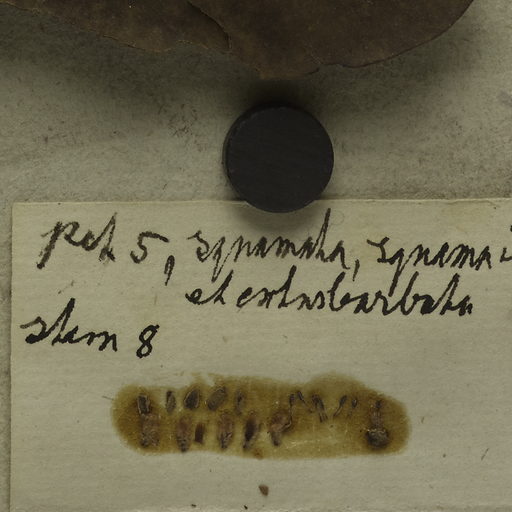 Pet 5, squamata, squama
et extus barbata
Stam 8